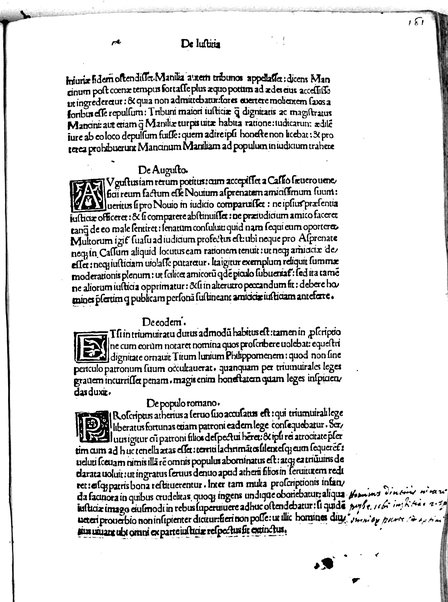 161
De Iustitia
iniuriæ fidem ostendisset. Manilia autem tribunos appellasset: dicens Man
cinum post coenæ tempus fortasse plus æquo potum ad ædes eius accessisse
ut ingrederetur: & quia non admittebatur: fores euertere molientem saxis a
foribus esse repulsum: Tribuni maiori iusticiæ q̃ dignitatis ac magistratus
Mancini aut etiam q̃ Maniliæ turpis uitæ habita ratione: iudicarunt: ædilē
iure ab eo loco depulsum fuisse: quem adire ipsi honeste non licebat: & pro
pterea prohibuerunt Mancinum Maniliam ad populum in iudicium trahere
De Augusto.
AVgustus iam rerum potitus: cum accepisset a Cassio sæuero uene
ficii reum factum esse Nouium asprenatem amicissimum suum:
ueritus si pro Nouio in iudicio comparuisset: ne ipsius præsentia
iusticiæ officeret: & si comparere abstinuisset: ne præiudicium amico faceret
tanq̃ de eo male sentiret: senatum consuluit quid nam sequi eum oporteret.
Multorum igit suasu ad iudicium profectus est: ubi neque pro Asprenate
neq; in Cassum aliquid locutus eam rationem tenuit: ut neq; amiciciæ de
esset: neq; iusticiam uiolasse putaretur. Itaq; igitur exemplum reliquit summæ
moderationis plenum: ut scilicet amicorũ qdē piculo subueniaſ: sed ita tamē
ne aliorum iusticia opprimatur: & si in alterutro peccandum fit: debere ho
mines p̃sertim q publicam personã sustineant: amiciciæ iusticiam anteferre.
De eodem.
ETsi in triumuiratu durus admodũ habitus est: tamen in pscriptio
ne cum eorũm notaret nomina quos proscribere uolebat: equestri
dignitate ornauit Titum Iunium Philippomenem: quod non sine
periculo patronum suum occultauerat. quanquam per triumuirales leges
grauem incurrisset penam. magis enim honestatem quam leges inspicien
das duxit.
De populo romano.
PRoscriptus atherius a seruo suo accusatus est: qui triumuirali lege
liberatus fortunas etiam patroni eadem lege consequebatur. Ser
uus igitur cũ patroni filios despectui hēret: & ipsi rei atrocitate p̃ser
tim cum ad huc tenella ætas esset: territi lachrimãtes silenteq; eum sequerēt:
ueluti scelestam nimis illã rē omnis populus abominatus est: atq; ea triũuiris de
clarata uoluit: ut ingratus seruus denuo apud atherii filios in seruitutem redi
ret: eisq; patris bona restituerentur. Inter tam multa proscriptionis infan
da facinora in quibus crudelitas, quoq; ingens undique oboriebatur: aliqua
iusticiæ imago eiusmodi in rebus superuiuere adhuc ostendebat: si quidē
ueteri prouerbio non insipienter dictum fieri non posse: ut illic homines diu
tius uiuant ubi omni ex parte iusticiæ respectus sit extinctus.